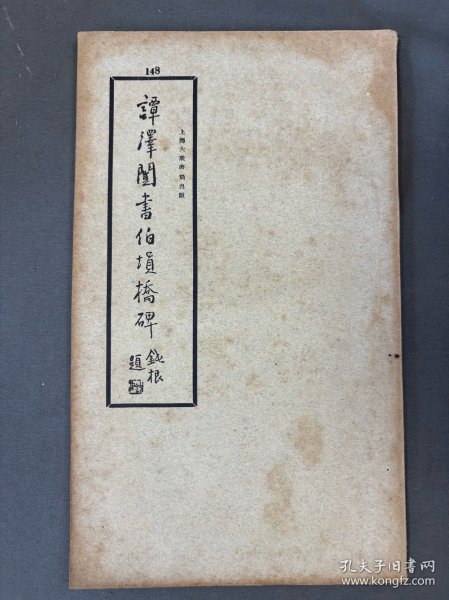 148
上海大眾書局出版
譚澤闓書伯塤橋碑
鈍根
題
孔夫子旧书网
www.kongfz.com